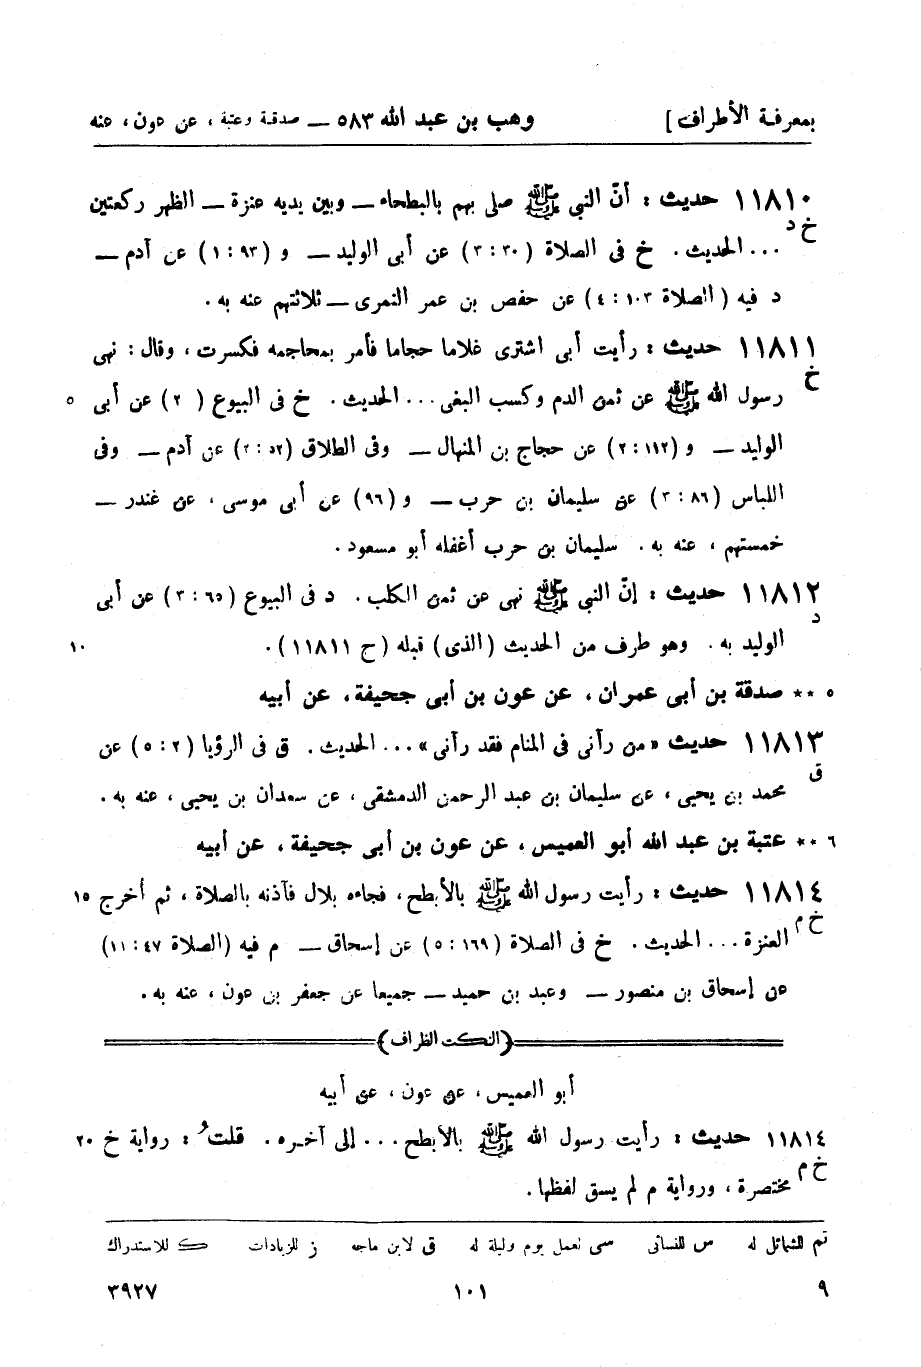 بمعرفة الأطراف] وهب بن عبد الله ٥٨٣ — صدقة وعتبة ، عن عون ، عنه
١١٨١٠ حديث : أنّ النبي ﷺ صلى بهم بالبطحاء — وبين يديه عنزة — الظهر ركعتين
خ د ... الحديث . خ فى الصلاة (٣٠ : ٣) عن أبى الوليد — و (٩٣ : ١) عن آدم —
د فيه (الصلاة ١٠٣ : ٤) عن حفص بن عمر النمرى — ثلاثتهم عنه به .
١١٨١١ حديث : رأيت أبى اشترى غلاما حجاما فأمر بمحاجمه فكسرت ، وقال : نهى
خ رسول الله ﷺ عن ثمن الدم وكسب البغى ... الحديث . خ فى البيوع ( ٢) عن أبى ٥
الوليد — و (١١٢ : ٢) عن حجاج بن المنهال — وفى الطلاق (٥٢ : ٢) عن آدم — وفى
اللباس (٨٦ : ٢) عن سليمان بن حرب — و (٩٦) عن أبى موسى ، عن غندر —
خمستهم ، عنه به . سليمان بن حرب أغفله أبو مسعود .
١١٨١٢ حديث : إنّ النبي ﷺ نهى عن ثمن الكلب . د فى البيوع (٦٥ : ٣) عن أبى
د الوليد به . وهو طرف من الحديث (الذى) قبله (ح ١١٨١١) . ١٠
٥ ** صدقة بن أبى عمران ، عن عون بن أبى جحيفة ، عن أبيه
١١٨١٣ حديث «من رآنى فى المنام فقد رآنى» ... الحديث . ق فى الرؤيا (٢ : ٥) عن
ق محمد بن يحيى ، عن سليمان بن عبد الرحمن الدمشقى ، عن سعدان بن يحيى ، عنه به .
٦ ** عتبة بن عبد الله أبو العميس ، عن عون بن أبى جحيفة ، عن أبيه
١١٨١٤ حديث : رأيت رسول الله ﷺ بالأبطح ، فجاءه بلال فآذنه بالصلاة ، ثم أخرج ١٥
خ م العنزة ... الحديث . خ فى الصلاة (١٦٩ : ٥) عن إسحاق — م فيه (الصلاة ٤٧ : ١١)
عن إسحاق بن منصور — وعبد بن حميد — جميعا عن جعفر بن عون ، عنه به .
(النكت الظراف)
أبو العميس ، عن عون ، عن أبيه
١١٨١٤ حديث : رأيت رسول الله ﷺ بالأبطح ... إلى آخره . قلتُ : رواية خ ٢٠
خ م مختصرة ، ورواية م لم يسق لفظها .
تم للشمائل له س للنسائى سى لعمل يوم وليلة له ق لابن ماجه ز للزيادات ك للاستدراك
٩ ١٠١ ٣٩٢٧